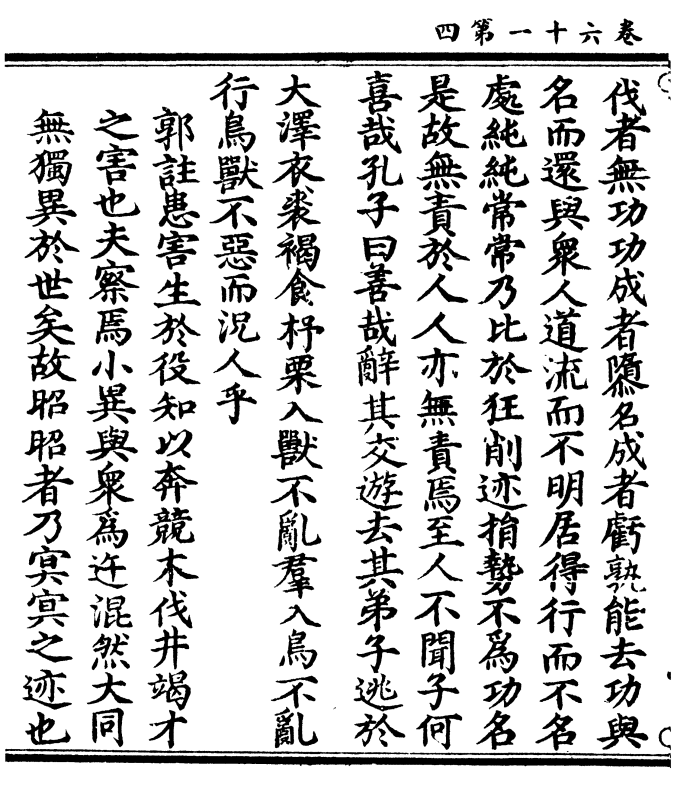 卷六十一第四
伐者無功功成者隳名成者虧孰能去功與
名而還與衆人道流而不明居得行而不名
處純純常常乃比於狂削迹捐勢不爲功名
是故無責於人人亦無責焉至人不聞子何
喜哉孔子曰善哉辭其交遊去其弟子逃於
大澤衣裘褐食杼栗入獸不亂羣入鳥不亂
行鳥獸不惡而況人乎
郭註患害生於役知以奔競木伐井竭才
之害也夫察焉小異與衆爲迕混然大同
無獨異於世矣故昭昭者乃冥冥之迹也